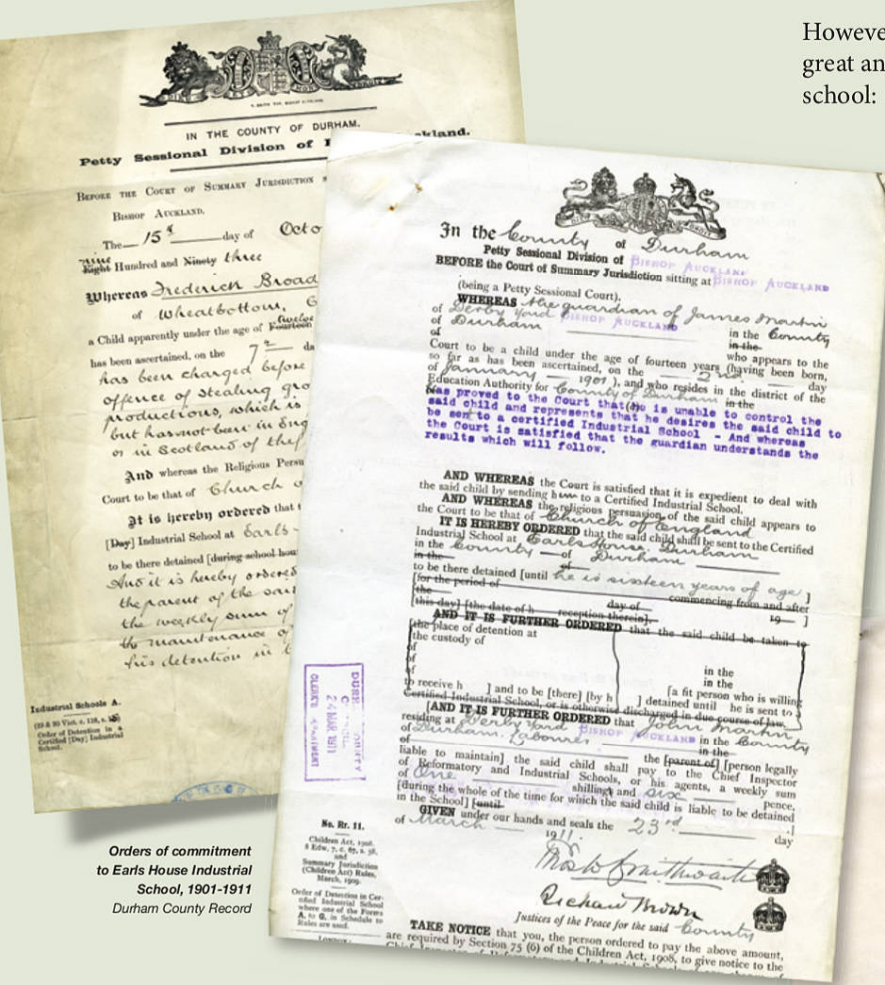 Howeve
great an
school:
IN THE COUNTY OF DURHAM.
Petty Sessional Division of ckland.
BEFORE THE COURT OF SUMMARY JURISDICTION
BISHOP AUCKLAND.
The 15th day of Octo
nine
Eight Hundred and Ninety three
Whereas Frederick Broad
of Wheatbottom,
twelve
a Child apparently under the age of Fourteen
has been ascertained, on the 7th da
has been charged before
offence of stealing gro
productions, which is
but has not been in Eng
or in Scotland of the f
And whereas the Religious Persu
Court to be that of Church o
It is hereby ordered that t
[Day] Industrial School at Earls-
to be there detained [during school hou
And it is hereby ordered
the parent of the said
the weekly sum of
the maintenance of
his detention in t
Industrial Schools A.
Order of Detention in a
Certified [Day] Industrial
School.
In the County of Durham
Petty Sessional Division of BISHOP AUCKLAND
BEFORE the Court of Summary Jurisdiction sitting at BISHOP AUCKLAND
(being a Petty Sessional Court).
WHEREAS the guardian of James Martin
of Derby Yard BISHOP AUCKLAND in the County
of Durham in the
of who appears to the
Court to be a child under the age of fourteen years (having been born,
so far as has been ascertained, on the 2nd day
of January 1901), and who resides in the district of the
Education Authority for County of Durham in the
has proved to the Court that (s)he is unable to control the
said child and represents that he desires the said child to
be sent to a certified Industrial School - And whereas
the Court is satisfied that the guardian understands the
results which will follow.
AND WHEREAS the Court is satisfied that it is expedient to deal with
the said child by sending him to a Certified Industrial School.
AND WHEREAS the religious persuasion of the said child appears to
the Court to be that of Church of England
IT IS HEREBY ORDERED that the said child shall be sent to the Certified
Industrial School at Earls House, Durham
in the County of Durham
in the of
to be there detained [until he is sixteen years of age ]
[for the period of commencing from and after
the day of 19 ]
[this day] [the date of h reception therein].
AND IT IS FURTHER ORDERED that the said child be taken to
[the place of detention at
the custody of
of
of in the
of in the
of [a fit person who is willing
to receive h ] and to be [there] [by h ] detained until he is sent to a
Certified Industrial School, or is otherwise discharged in due course of law.
[AND IT IS FURTHER ORDERED that John Martin
residing at Derby Yard BISHOP AUCKLAND in the County
of Durham, Labourer in the
of the [parent of] [person legally
liable to maintain] the said child shall pay to the Chief Inspector
of Reformatory and Industrial Schools, or his agents, a weekly sum
of One shilling and six pence,
[during the whole of the time for which the said child is liable to be detained
in the School] [until .]
GIVEN under our hands and seals the 23rd day
of March 1911.
Braithwaite
Richard Brown
Justices of the Peace for the said County
TAKE NOTICE that you, the person ordered to pay the above amount,
are required by Section 75 (6) of the Children Act, 1908, to give notice to the
DURHAM COUNTY
COUNCIL
24 MAR 1911
CLERK'S DEPARTMENT
No. Rr. 11.
Children Act, 1908.
8 Edw. 7, c. 67, s. 58,
and
Summary Jurisdiction
(Children Act) Rules,
March, 1909.
Order of Detention in Cer-
tified Industrial School
where one of the Forms
A. to G. in Schedule to
Rules are used.
LONDON:
Orders of commitment
to Earls House Industrial
School, 1901-1911
Durham County Record